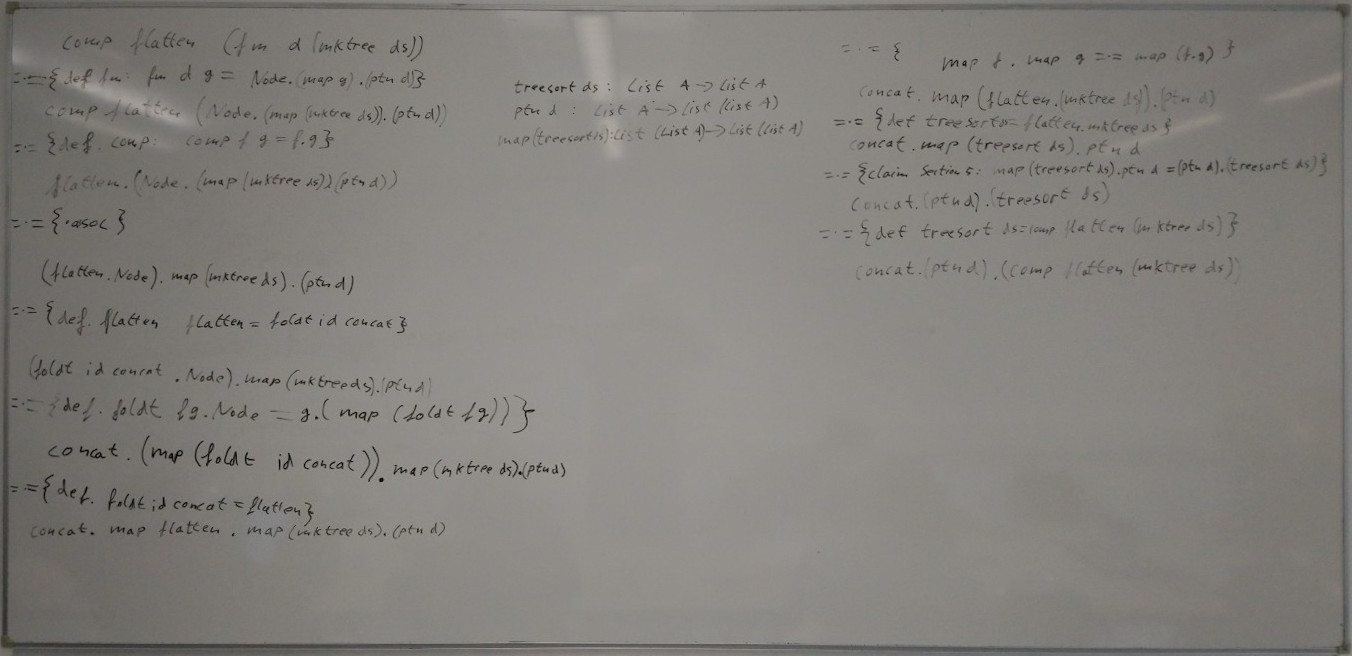 comp flatten (fm d (mktree ds))
=·={def fm: fm d g = Node.(map g).(ptn d)}
comp flatten (Node.(map (mktree ds)).(ptn d))
=·= {def. comp: comp f g = f.g}
flatten.(Node.(map (mktree ds)).(ptn d))
=·= {·asoc}
(flatten.Node). map (mktree ds).(ptn d)
=·= {def. flatten flatten = foldt id concat}
(foldt id concat .Node). map (mktree ds).(ptn d)
=·= {def. foldt f g.Node = g.( map (foldt f g))}
concat. (map (foldt id concat)). map (mktree ds).(ptn d)
=·={def. foldt id concat = flatten}
concat. map flatten . map (mktree ds). (ptn d)
treesort ds : List A -> List A
ptn d : List A -> List (List A)
map(treesort ds):List (List A)->List (List A)
=·= { map f . map g =·= map (f.g) }
concat. map (flatten.(mktree ds)).(ptn d)
=·= {def treesort ds= flatten.mktree ds}
concat. map (treesort ds). ptn d
=·= {claim Section 5: map(treesort ds).ptn d =(ptn d).(treesort ds)}
concat.(ptn d).(treesort ds)
=·= {def treesort ds=comp flatten (mktree ds)}
concat.(ptn d).(comp flatten (mktree ds))